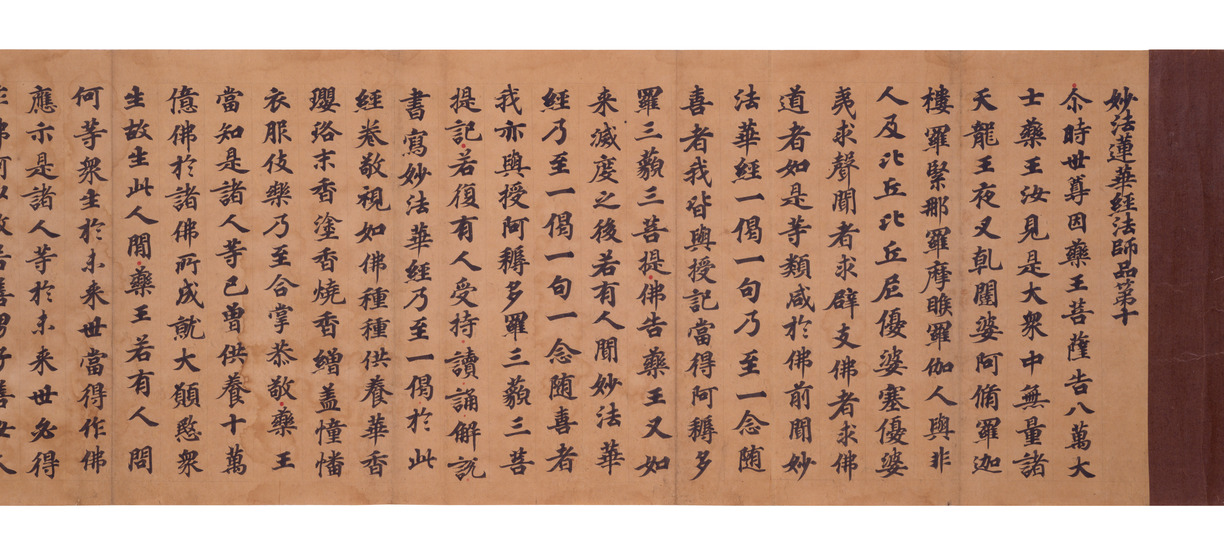 妙法蓮華經法師品第十
尒時世尊因藥王菩薩告八萬大
士藥王汝見是大衆中無量諸
天龍王夜叉乹闥婆阿脩羅迦
樓羅緊那羅摩睺羅伽人與非
人及比丘比丘尼優婆塞優婆
夷求聲聞者求辟支佛者求佛
道者如是等類咸於佛前聞妙
法華經一偈一句乃至一念随
喜者我皆與授記當得阿耨多
羅三藐三菩提佛告藥王又如
来滅度之後若有人聞妙法華
經乃至一偈一句一念随喜者
我亦與授阿耨多羅三藐三菩
提記若復有人受持讀誦解說
書寫妙法華經乃至一偈於此
經卷敬視如佛種種供養華香
瓔珞末香塗香燒香繒盖憧幡
衣服伎樂乃至合掌恭敬藥王
當知是諸人等已曽供養十萬
億佛於諸佛所成就大願愍衆
生故生此人間藥王若有人問
何等衆生於未来世當得作佛
應示是諸人等於未来世必得